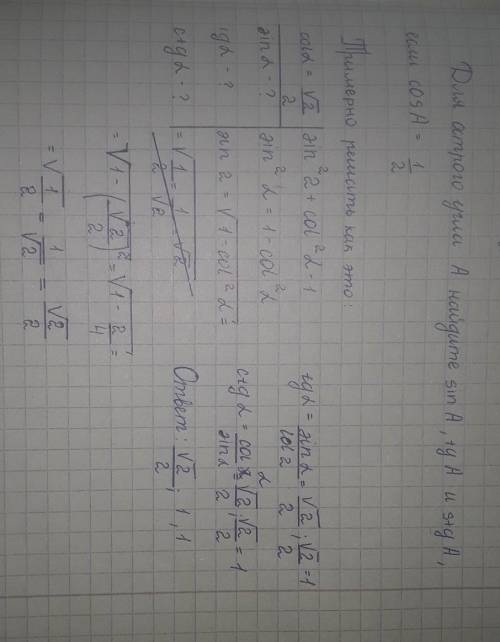 Для острого угла A найдите sin A, tg A и stg A,
если cos A = 1/2
Примерно решить как это:
cos α = √2/2
sin α - ?
tg α - ?
ctg α - ?
sin² α + cos² α - 1
sin² α = 1 - cos² α
sin α = √1 - cos² α =
= √1/2 = 1/√2 √2
= √1 - (√2/2)² = √1 - 2/4 =
= √1/2 = 1/√2 = √2/2
tg α = sin α/cos α = √2/2 : √2/2 = 1
ctg α = cos α/sin α = √2/2 : √2/2 = 1
Ответ: √2/2; 1, 1